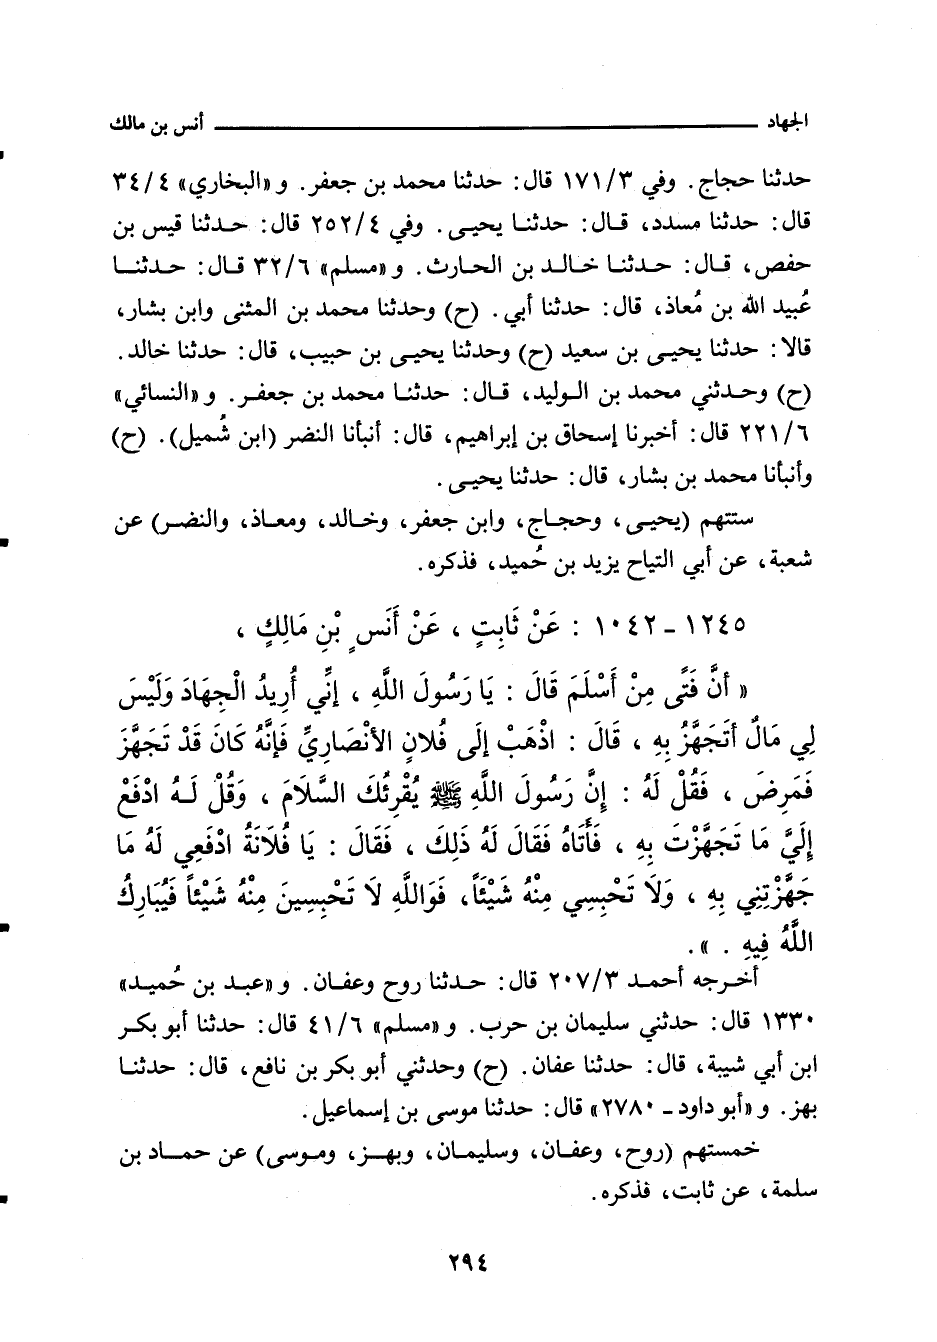 الجهاد ــــــــــــــــــــ أنس بن مالك
حدثنا حجاج. وفي ١٧١/٣ قال: حدثنا محمد بن جعفر. و «البخاري» ٣٤/٤
قال: حدثنا مسدد، قال: حدثنا يحيى. وفي ٢٥٢/٤ قال: حدثنا قيس بن
حفص، قال: حدثنا خالد بن الحارث. و «مسلم» ٣٢/٦ قال: حدثنا
عُبيد الله بن مُعاذ، قال: حدثنا أبي. (ح) وحدثنا محمد بن المثنى وابن بشار،
قالا: حدثنا يحيى بن سعيد (ح) وحدثنا يحيى بن حبيب، قال: حدثنا خالد.
(ح) وحدثني محمد بن الوليد، قال: حدثنا محمد بن جعفر. و «النسائي»
٢٢١/٦ قال: أخبرنا إسحاق بن إبراهيم، قال: أنبأنا النضر (ابن شُميل). (ح)
وأنبأنا محمد بن بشار، قال: حدثنا يحيى.
ستتهم (يحيى، وحجاج، وابن جعفر، وخالد، ومعاذ، والنضر) عن
شعبة، عن أبي التياح يزيد بن حُميد، فذكره.
١٢٤٥ - ١٠٤٢ : عَنْ ثَابِتٍ ، عَنْ أَنَسِ بْنِ مَالِكٍ ،
« أَنَّ فَتًى مِنْ أَسْلَمَ قَالَ : يَا رَسُولَ اللَّهِ ، إِنِّي أُرِيدُ الْجِهَادَ وَلَيْسَ
لِي مَالٌ أَتَجَهَّزُ بِهِ ، قَالَ : اذْهَبْ إِلَى فُلَانٍ الأَنْصَارِيِّ فَإِنَّهُ كَانَ قَدْ تَجَهَّزَ
فَمَرِضَ ، فَقُلْ لَهُ : إِنَّ رَسُولَ اللَّهِ ﷺ يُقْرِئُكَ السَّلَامَ ، وَقُلْ لَهُ ادْفَعْ
إِلَيَّ مَا تَجَهَّزْتَ بِهِ ، فَأَتَاهُ فَقَالَ لَهُ ذَلِكَ ، فَقَالَ : يَا فُلَانَةُ ادْفَعِي لَهُ مَا
جَهَّزْتِنِي بِهِ ، وَلَا تَحْبِسِي مِنْهُ شَيْئاً، فَوَاللَّهِ لَا تَحْبِسِينَ مِنْهُ شَيْئاً فَيُبَارِكُ
اللَّهُ فِيهِ . ».
أخرجه أحمد ٢٠٧/٣ قال: حدثنا روح وعفان. و «عبد بن حُميد»
١٣٣٠ قال: حدثني سليمان بن حرب. و «مسلم» ٤١/٦ قال: حدثنا أبو بكر
ابن أبي شيبة، قال: حدثنا عفان. (ح) وحدثني أبو بكر بن نافع، قال: حدثنا
بهز. و «أبو داود - ٢٧٨٠» قال: حدثنا موسى بن إسماعيل.
خمستهم (روح، وعفان، وسليمان، وبهز، وموسى) عن حماد بن
سلمة، عن ثابت، فذكره.
٢٩٤